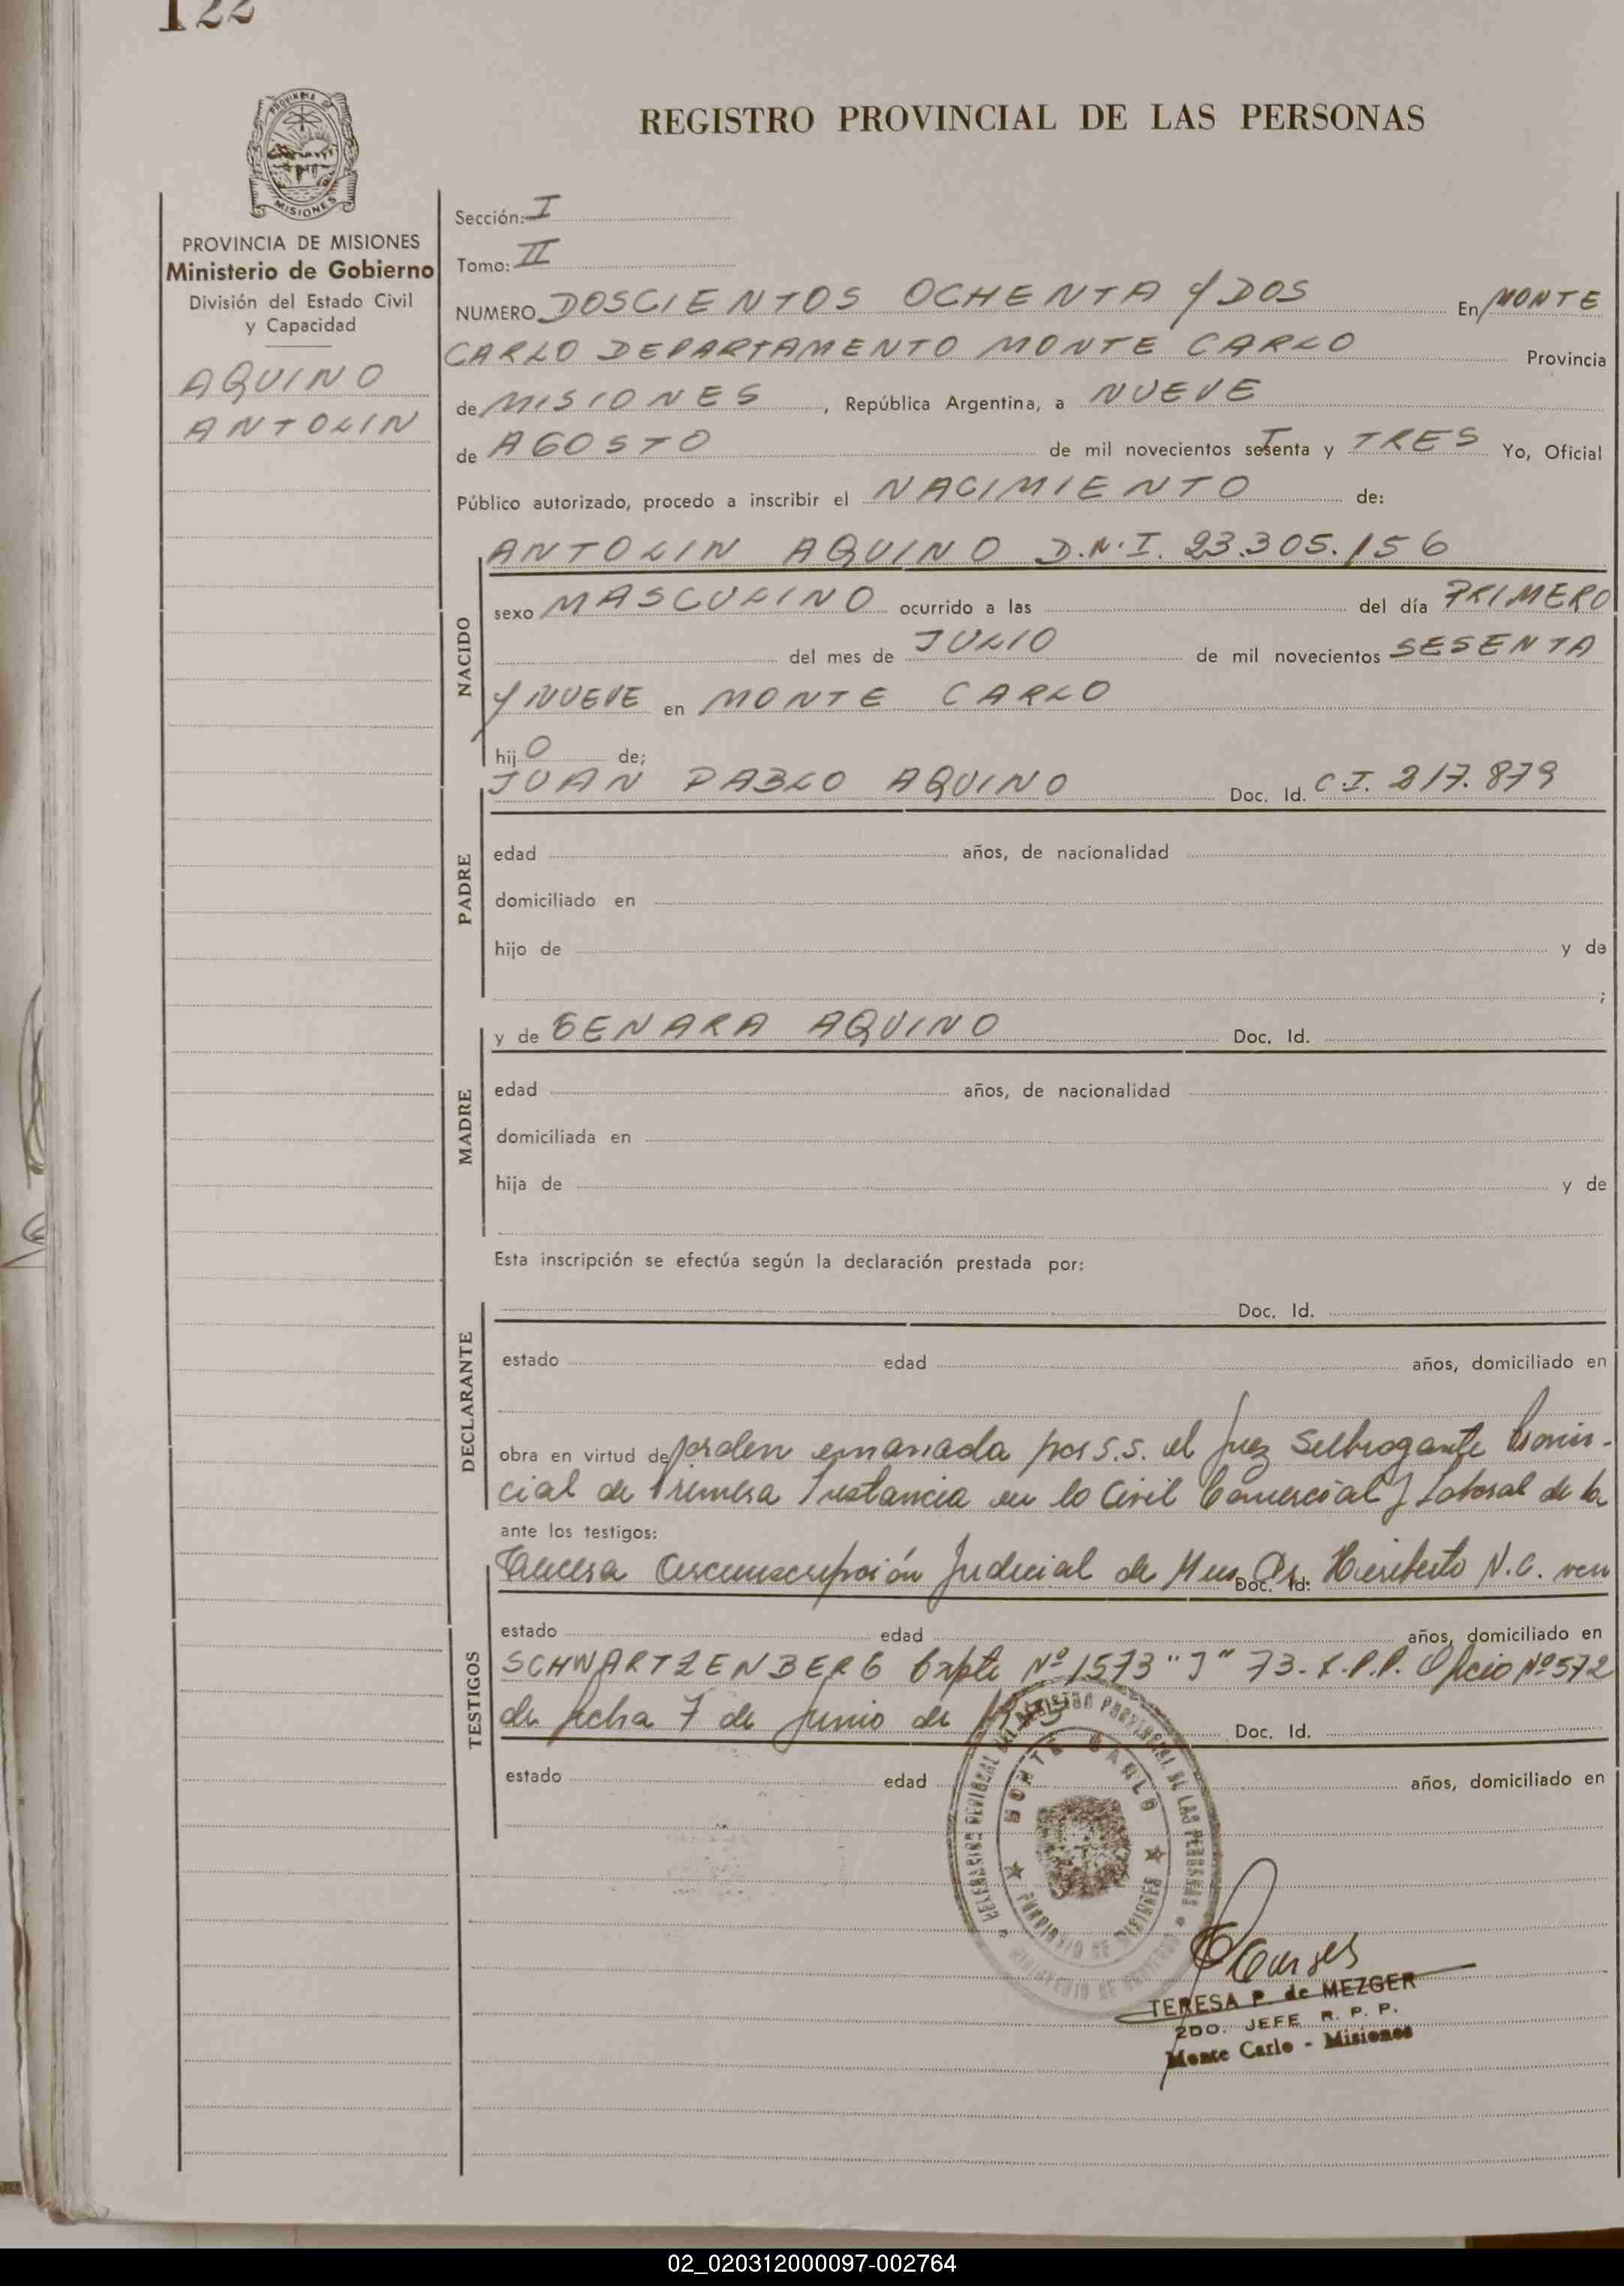 122
PROVINCIA DE
MISIONES
REGISTRO PROVINCIAL DE LAS PERSONAS
PROVINCIA DE MISIONES
Ministerio de Gobierno
División del Estado Civil
y Capacidad
AQUINO
ANTOLIN
Sección: I
Tomo: II
NUMERO DOSCIENTOS OCHENTA Y DOS En MONTE
CARLO DEPARTAMENTO MONTE CARLO Provincia
de MISIONES, República Argentina, a NUEVE
de AGOSTO de mil novecientos setenta y TRES Yo, Oficial
Público autorizado, procedo a inscribir el NACIMIENTO de:
NACIDO
ANTOLIN AQUINO D.N.I. 23.305.156
sexo MASCULINO ocurrido a las del día PRIMERO
del mes de JULIO de mil novecientos SESENTA
Y NUEVE en MONTE CARLO
hijO de;
PADRE
JUAN PABLO AQUINO Doc. Id. C.I. 217.879
edad años, de nacionalidad
domiciliado en
hijo de y de
;
MADRE
y de GENARA AQUINO Doc. Id.
edad años, de nacionalidad
domiciliada en
hija de y de
Esta inscripción se efectúa según la declaración prestada por:
DECLARANTE
Doc. Id.
estado edad años, domiciliado en
obra en virtud de orden emanada por S.S. el Juez Subrogante Provin-
cial de Primera Instancia en lo Civil Comercial y Laboral de la
ante los testigos:
TESTIGOS
Tercera Circunscripción Judicial de Mnes Dr. Heriberto N.C. von
Doc. Id.
estado edad años, domiciliado en
SCHWARTZENBERG Expte Nº 1573 "J" 73. R.P.P. Oficio Nº 572
de fecha 7 de Junio de Doc. Id.
estado edad años, domiciliado en
DELEGACION REGIONAL DEL REGISTRO PROVINCIAL DE LAS PERSONAS
MONTE CARLO
PROVINCIA DE MISIONES
MINISTERIO DE GOBIERNO
TERESA P. de MEZGER
2DO. JEFE R. P. P.
Monte Carlo - Misiones
02_020312000097-002764